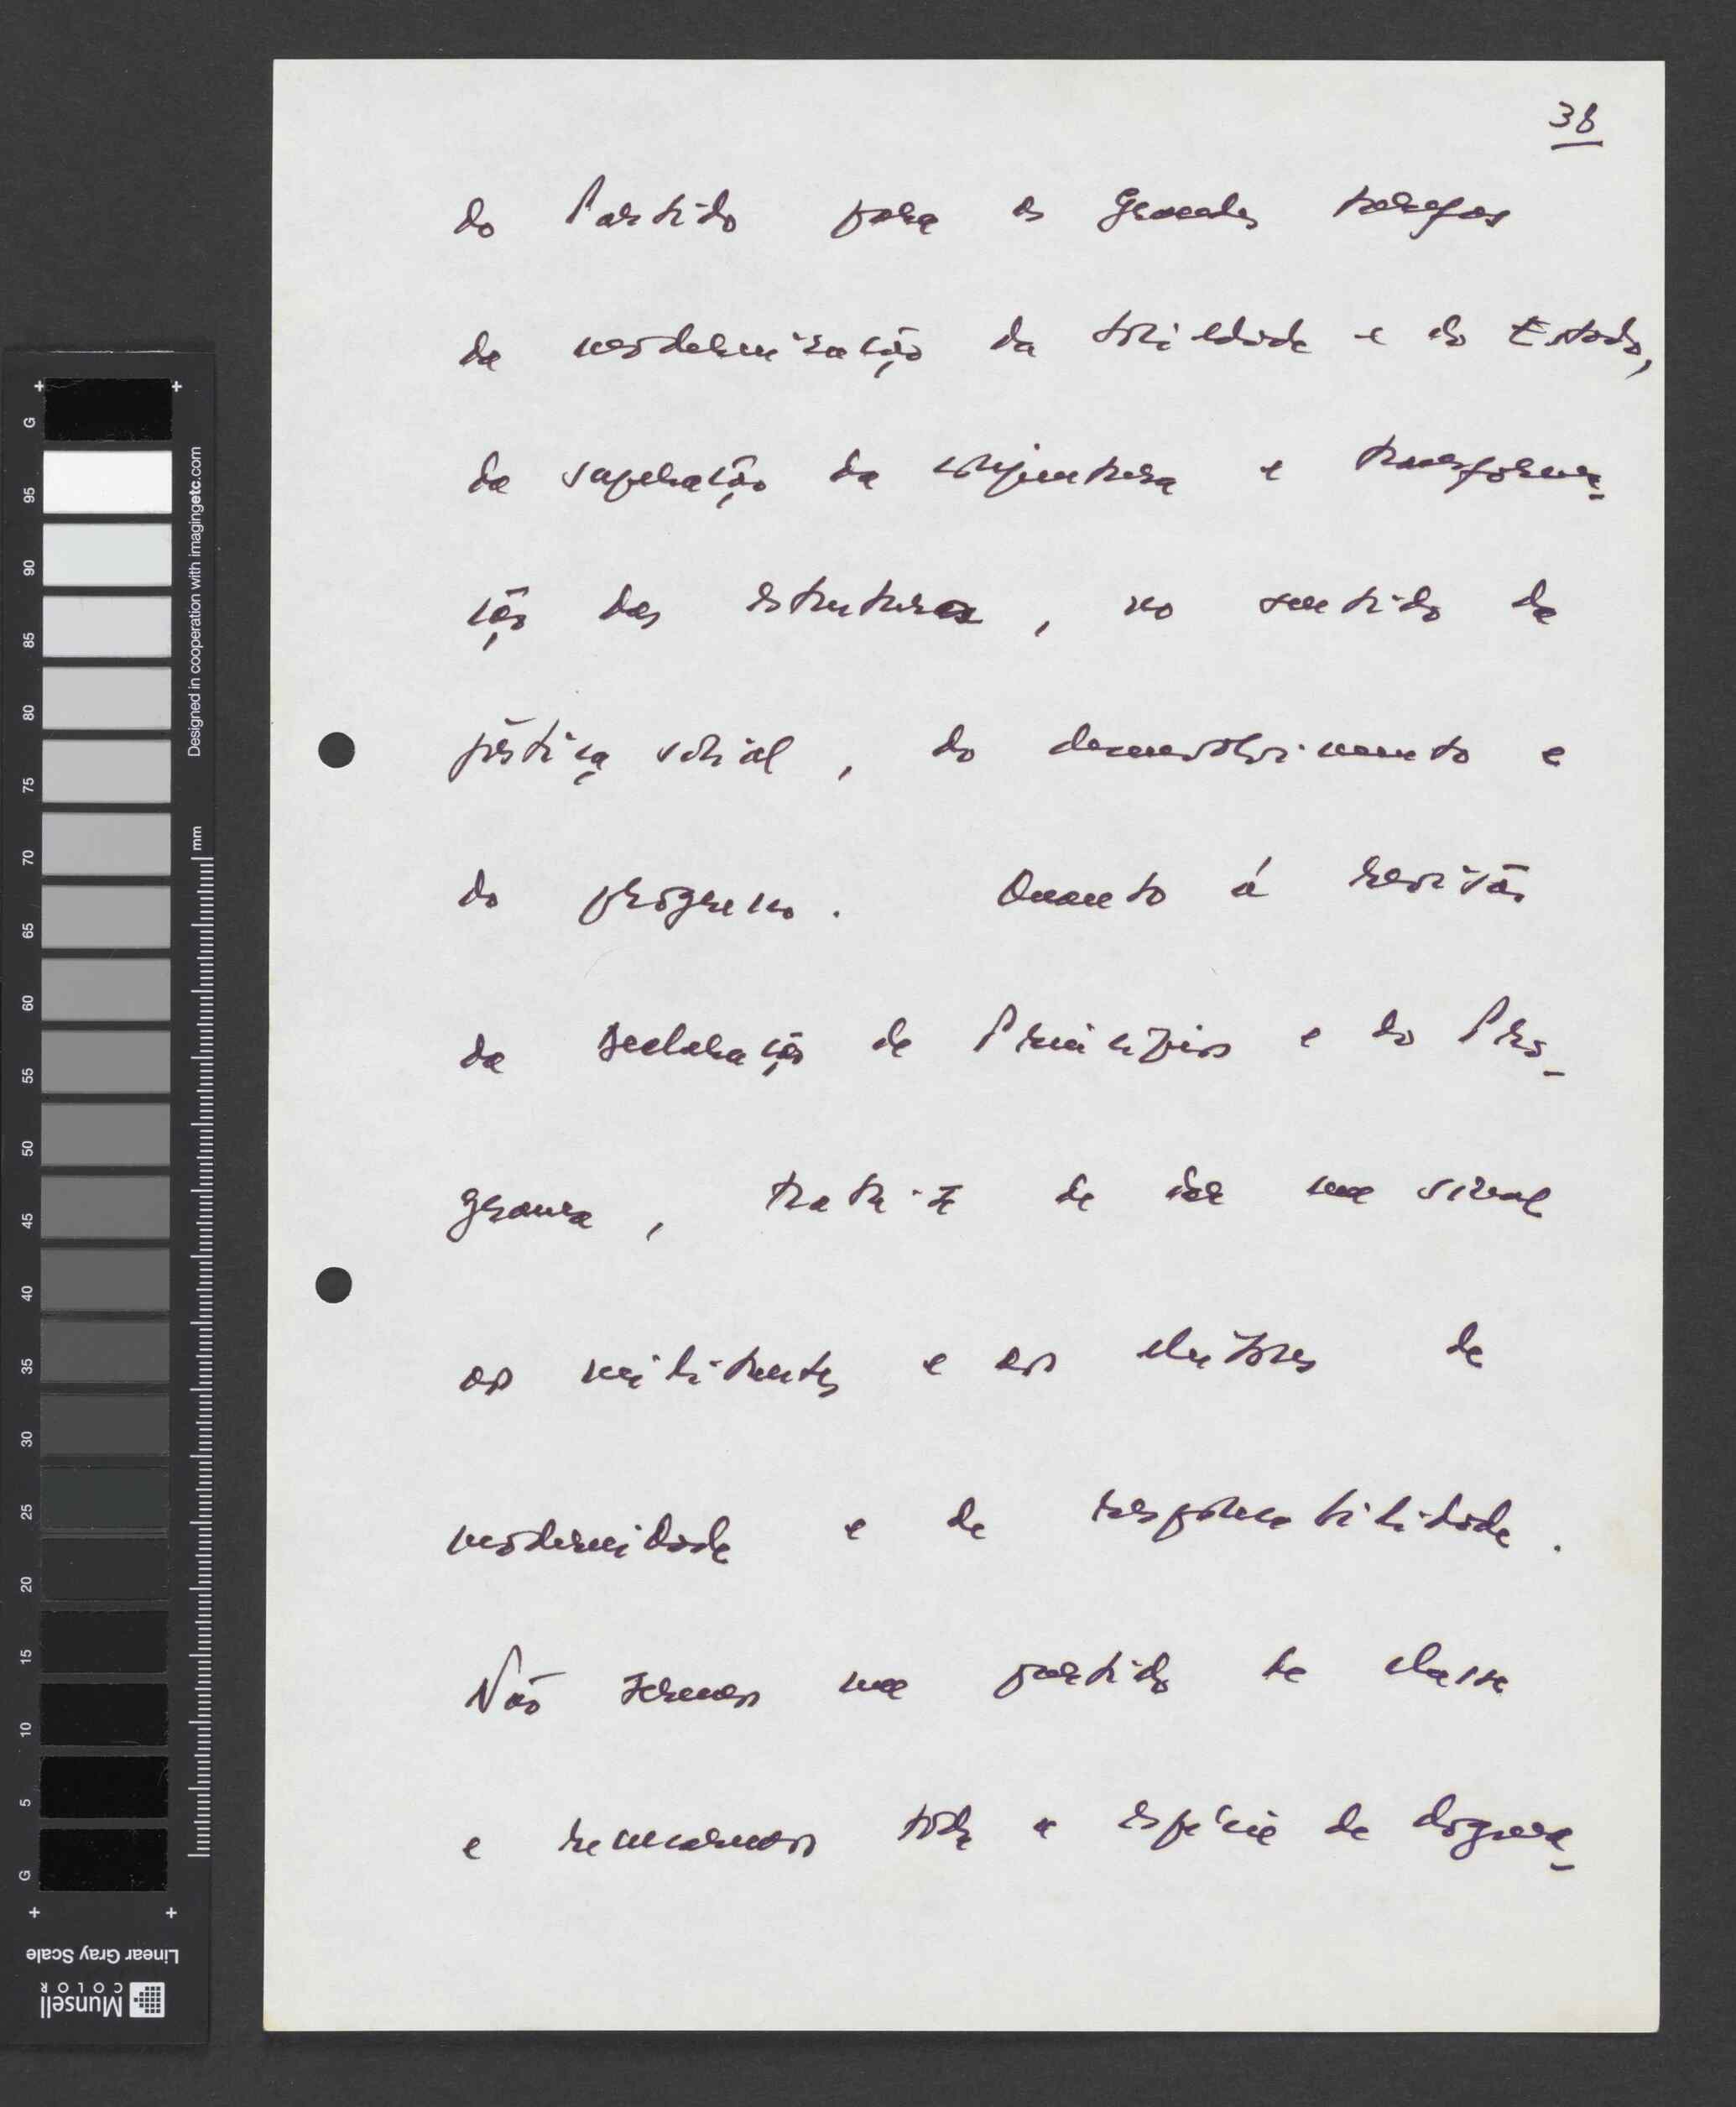 38
do Partido para as grandes tarefas
da modernização da sociedade e do Estado,
da superação da conjuntura e transforma-
ção das estruturas, no sentido da
justiça social, do desenvolvimento e
do progresso. Quanto à revisão
da Declaração de Princípios e do Pro-
grama, trata-se de dar um sinal
aos militantes e aos eleitores de
modernidade e de responsabilidade.
Não seremos um partido de classe
e recusaremos toda a espécie de dogma-
G
95
90
85
80
75
70
65
60
55
50
45
40
35
30
25
20
15
10
5
G
Designed in cooperation with imagingetc.com
mm
Linear Gray Scale
Munsell
COLOR